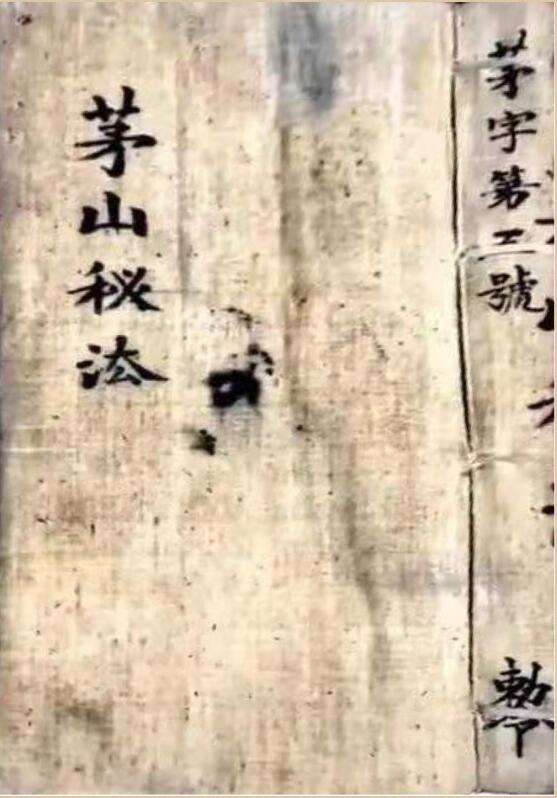 茅字第號
勅令
茅山秘法